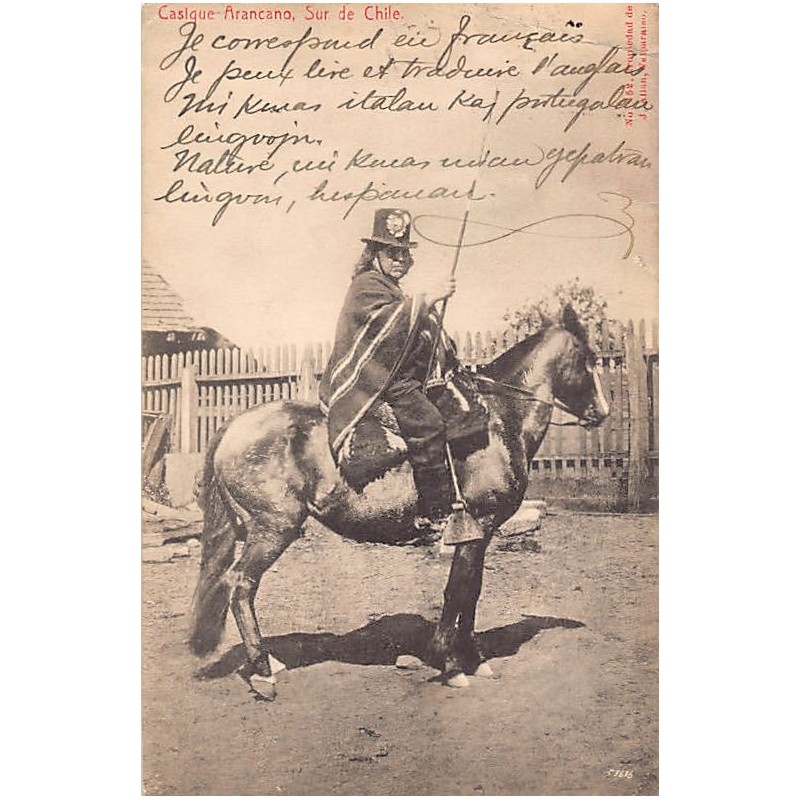 Casique Arancano, Sur de Chile.
Je correspond en français
Je peux lire et traduire l'anglais
Mi konas italan kaj portugalan
lingvojn.
Nature, mi konas mian gepatran
lingvon, hispanan.
No 152. Propiedad de
J. Allan, Valparaiso.